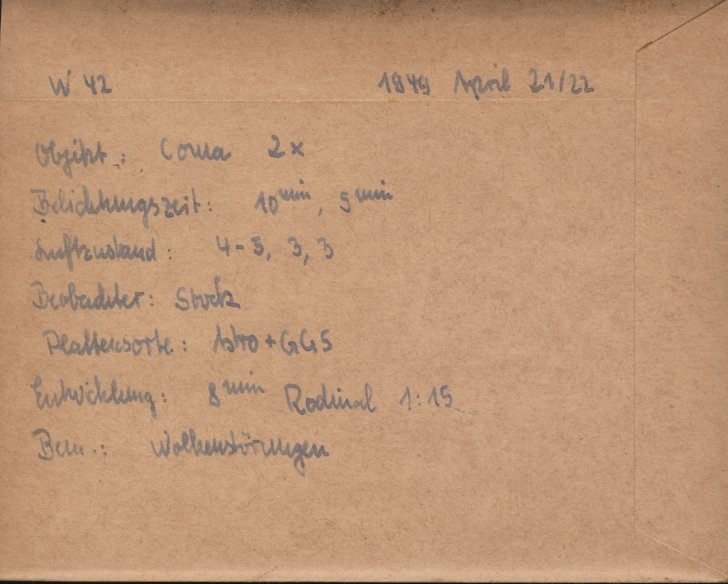 W 42 1949 April 21/22
Objekt: Coma 2x
Belichtungszeit: 10 min, 5 min
Luftzustand: 4-5, 3, 3
Beobachter: Stock
Plattensorte: Astro+GG5
Entwicklung: 8 min Rodinal 1:15
Bem.: Wolkenstörungen